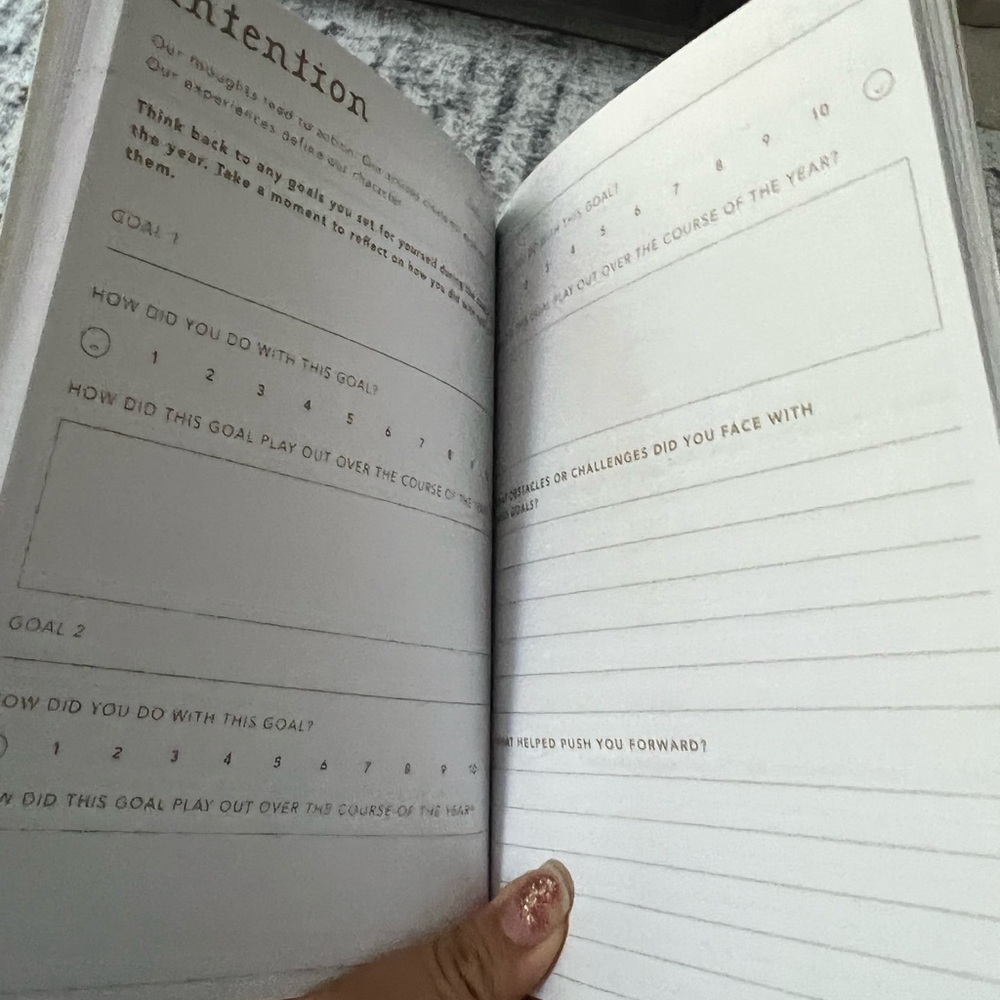 Intention
Our thoughts lead to action. Our actions create our
Our experiences define our character.
Think back to any goals you set for yourself during the
the year. Take a moment to reflect on how you did with
them.
GOAL 1
HOW DID YOU DO WITH THIS GOAL?
1 2 3 4 5 6 7 8 9
HOW DID THIS GOAL PLAY OUT OVER THE COURSE OF THE YEAR
GOAL 2
OW DID YOU DO WITH THIS GOAL?
1 2 3 4 5 6 7 8 9 10
W DID THIS GOAL PLAY OUT OVER THE COURSE OF THE YEAR?
DO WITH THIS GOAL?
2 3 4 5 6 7 8 9 10
THIS GOAL PLAY OUT OVER THE COURSE OF THE YEAR?
OBSTACLES OR CHALLENGES DID YOU FACE WITH
GOALS?
HAT HELPED PUSH YOU FORWARD?